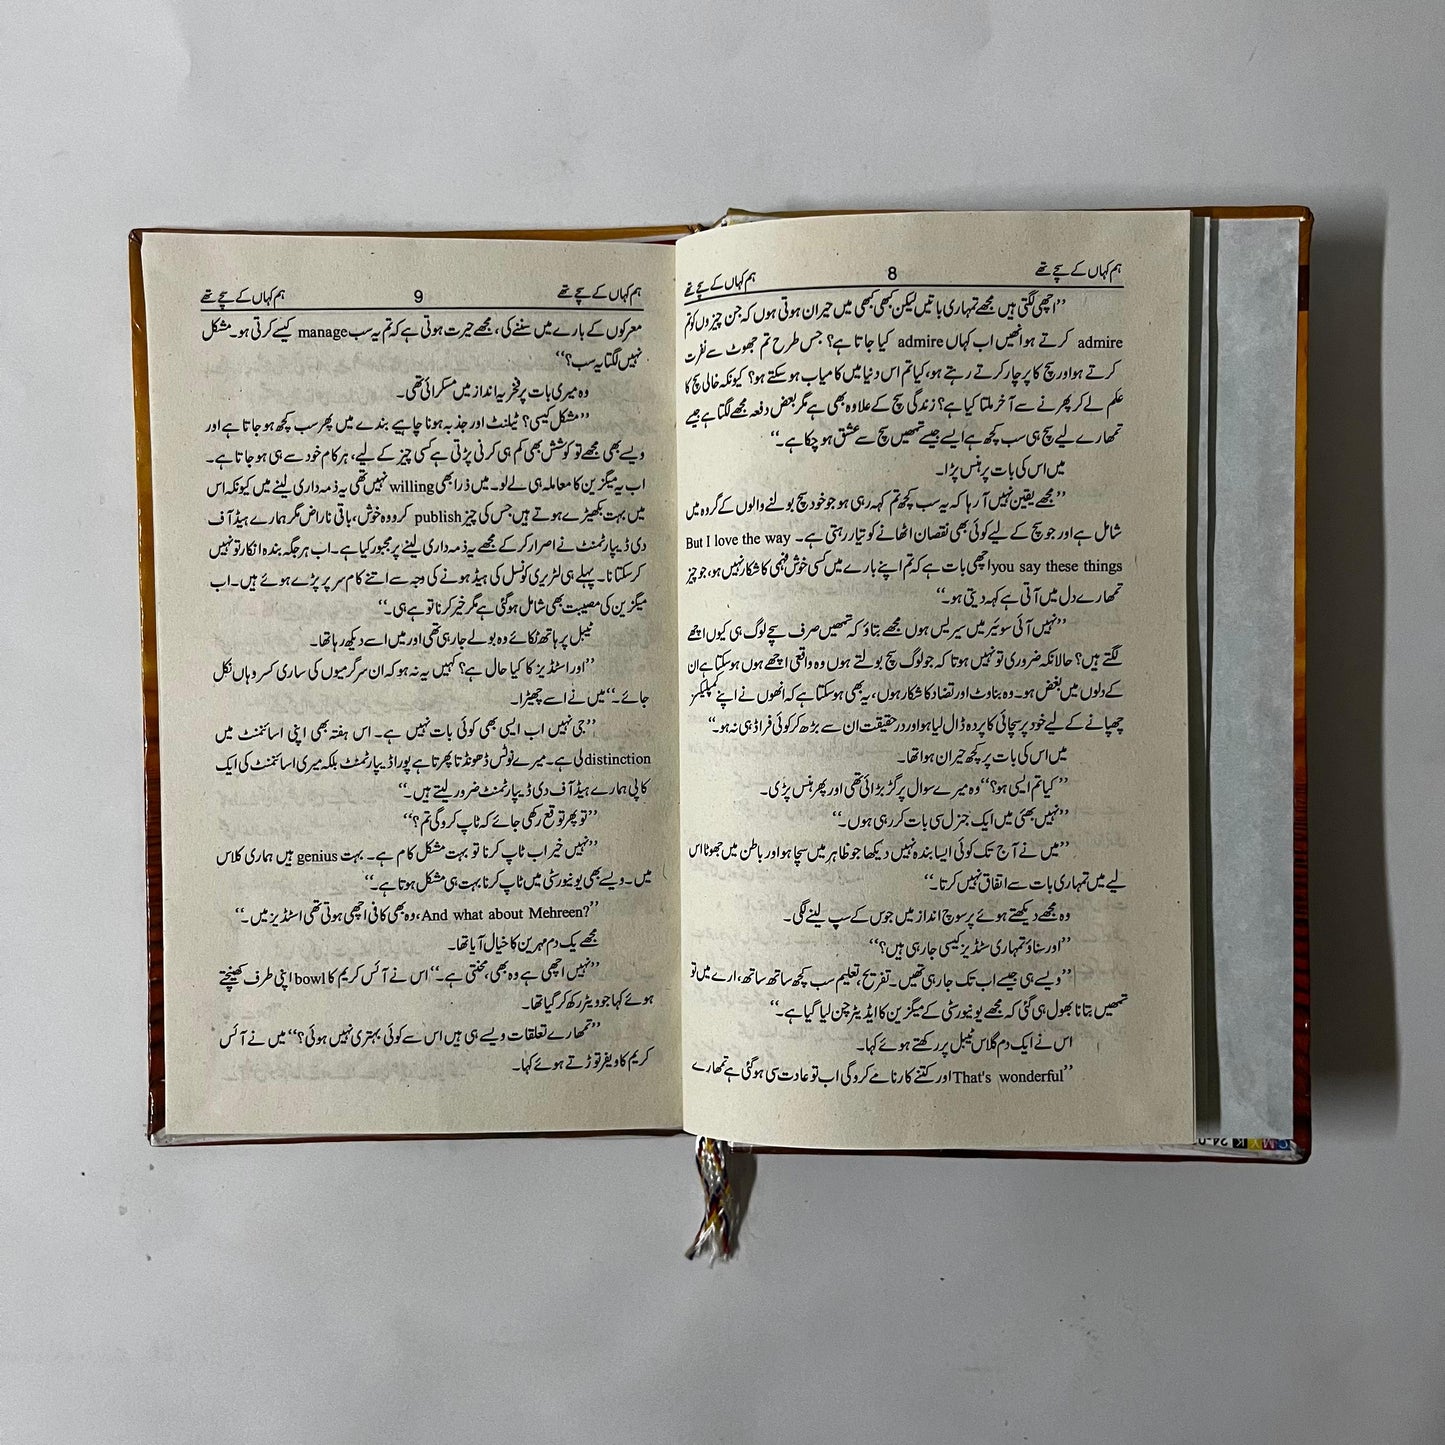 ہم کہاں کے سچے تھے 8 ہم کہاں کے سچے تھے
’’اچھی لگتی ہیں مجھے تمہاری باتیں لیکن کبھی کبھی میں حیران ہوتی ہوں کہ جن چیزوں کو تم
admire کرتے ہو انھیں اب کہاں admire کیا جاتا ہے؟ جس طرح تم جھوٹ سے نفرت
کرتے ہو اور سچ کا پرچار کرتے رہتے ہو، کیا تم اس دنیا میں کامیاب ہو سکتے ہو؟ کیونکہ خالی سچ کا
علم لے کر پھرنے سے آخر ملتا کیا ہے؟ زندگی سچ کے علاوہ بھی ہے مگر بعض دفعہ مجھے لگتا ہے جیسے
تمھارے لیے سچ ہی سب کچھ ہے ایسے جیسے تمھیں سچ سے عشق ہو چکا ہے۔‘‘
میں اس کی بات پر ہنس پڑا۔
’’مجھے یقین نہیں آ رہا کہ یہ سب کچھ تم کہہ رہی ہو جو خود سچ بولنے والوں کے گروہ میں
شامل ہے اور جو سچ کے لیے کوئی بھی نقصان اٹھانے کو تیار رہتی ہے۔ But I love the way
you say these things اچھی بات ہے کہ تم اپنے بارے میں کسی خوش فہمی کا شکار نہیں ہو، جو چیز
تمھارے دل میں آتی ہے کہہ دیتی ہو۔‘‘
’’نہیں آئی سوئیر میں سیریس ہوں مجھے بتاؤ کہ تمھیں صرف سچے لوگ ہی کیوں اچھے
لگتے ہیں؟ حالانکہ ضروری تو نہیں ہوتا کہ جو لوگ سچ بولتے ہوں وہ واقعی اچھے ہوں ہو سکتا ہے ان
کے دلوں میں بغض ہو۔ وہ بناوٹ اور تضاد کا شکار ہوں، یہ بھی ہو سکتا ہے کہ انھوں نے اپنے کمپلیکسز
چھپانے کے لیے خود پر سچائی کا پردہ ڈال لیا ہو اور در حقیقت ان سے بڑھ کر کوئی فراڈ ہی نہ ہو۔‘‘
میں اس کی بات پر کچھ حیران ہوا تھا۔
’’کیا تم ایسی ہو؟‘‘ وہ میرے سوال پر گڑبڑائی تھی اور پھر ہنس پڑی۔
’’نہیں بھئی میں ایک جنرل سی بات کر رہی ہوں۔‘‘
’’میں نے آج تک کوئی ایسا بندہ نہیں دیکھا جو ظاہر میں سچا ہو اور باطن میں جھوٹا اس
لیے میں تمہاری بات سے اتفاق نہیں کرتا۔‘‘
وہ مجھے دیکھتے ہوئے پر سوچ انداز میں جوس کے سپ لینے لگی۔
’’اور سناؤ تمہاری سٹڈیز کیسی جا رہی ہیں؟‘‘
’’ویسے ہی جیسے اب تک جا رہی تھیں۔ تفریح، تعلیم سب کچھ ساتھ ساتھ، ارے میں تو
تمھیں بتانا بھول ہی گئی کہ مجھے یونیورسٹی کے میگزین کا ایڈیٹر چن لیا گیا ہے۔‘‘
اس نے ایک دم گلاس ٹیبل پر رکھتے ہوئے کہا۔
’’That's wonderful اور کتنے کارنامے کرو گی اب تو عادت سی ہو گئی ہے تمھارے
ہم کہاں کے سچے تھے 9 ہم کہاں کے سچے تھے
معرکوں کے بارے میں سننے کی، مجھے حیرت ہوتی ہے کہ تم یہ سب manage کیسے کرتی ہو۔ مشکل
نہیں لگتا یہ سب؟‘‘
وہ میری بات پر فخریہ انداز میں مسکرائی تھی۔
’’مشکل کیسی؟ ٹیلنٹ اور جذبہ ہونا چاہیے بندے میں پھر سب کچھ ہو جاتا ہے اور
ویسے بھی مجھے تو کوشش بھی کم ہی کرنی پڑتی ہے کسی چیز کے لیے، ہر کام خود سے ہی ہو جاتا ہے۔
اب یہ میگزین کا معاملہ ہی لے لو۔ میں ذرا بھی willing نہیں تھی یہ ذمہ داری لینے میں کیونکہ اس
میں بہت بکھیڑے ہوتے ہیں جس کی چیز publish کرو وہ خوش، باقی ناراض مگر ہمارے ہیڈ آف
دی ڈیپارٹمنٹ نے اصرار کر کے مجھے یہ ذمہ داری لینے پر مجبور کیا ہے۔ اب ہر جگہ بندہ انکار تو نہیں
کر سکتا نا۔ پہلے ہی لٹریری کونسل کی ہیڈ ہونے کی وجہ سے اتنے کام سر پر پڑے ہوئے ہیں۔ اب
میگزین کی مصیبت بھی شامل ہو گئی ہے مگر خیر کرنا تو ہے ہی۔‘‘
ٹیبل پر ہاتھ ٹکائے وہ بولے جا رہی تھی اور میں اسے دیکھ رہا تھا۔
’’اور اسٹڈیز کا کیا حال ہے؟ کہیں یہ نہ ہو کہ ان سرگرمیوں کی ساری کسر وہاں نکل
جائے۔‘‘ میں نے اسے چھیڑا۔
’’جی نہیں اب ایسی بھی کوئی بات نہیں ہے۔ اس ہفتہ بھی اپنی اسائنمنٹ میں
distinction لی ہے۔ میرے نوٹس ڈھونڈتا پھرتا ہے پورا ڈیپارٹمنٹ بلکہ میری اسائنمنٹ کی ایک
کاپی ہمارے ہیڈ آف دی ڈیپارٹمنٹ ضرور لیتے ہیں۔‘‘
’’تو پھر توقع رکھی جائے کہ ٹاپ کرو گی تم؟‘‘
’’نہیں خیر اب ٹاپ کرنا تو بہت مشکل کام ہے۔ بہت genius ہیں ہماری کلاس
میں۔ ویسے بھی یونیورسٹی میں ٹاپ کرنا بہت ہی مشکل ہوتا ہے۔‘‘
’’And what about Mehreen?، وہ بھی کافی اچھی ہوتی تھی اسٹڈیز میں۔‘‘
مجھے یک دم مہرین کا خیال آیا تھا۔
’’نہیں اچھی ہے وہ بھی، محنتی ہے۔‘‘ اس نے آئس کریم کا bowl اپنی طرف کھینچتے
ہوئے کہا جو ویٹر رکھ کر گیا تھا۔
’’تمھارے تعلقات ویسے ہی ہیں اس سے کوئی بہتری نہیں ہوئی؟‘‘ میں نے آئس
کریم کا ویفر توڑتے ہوئے کہا۔